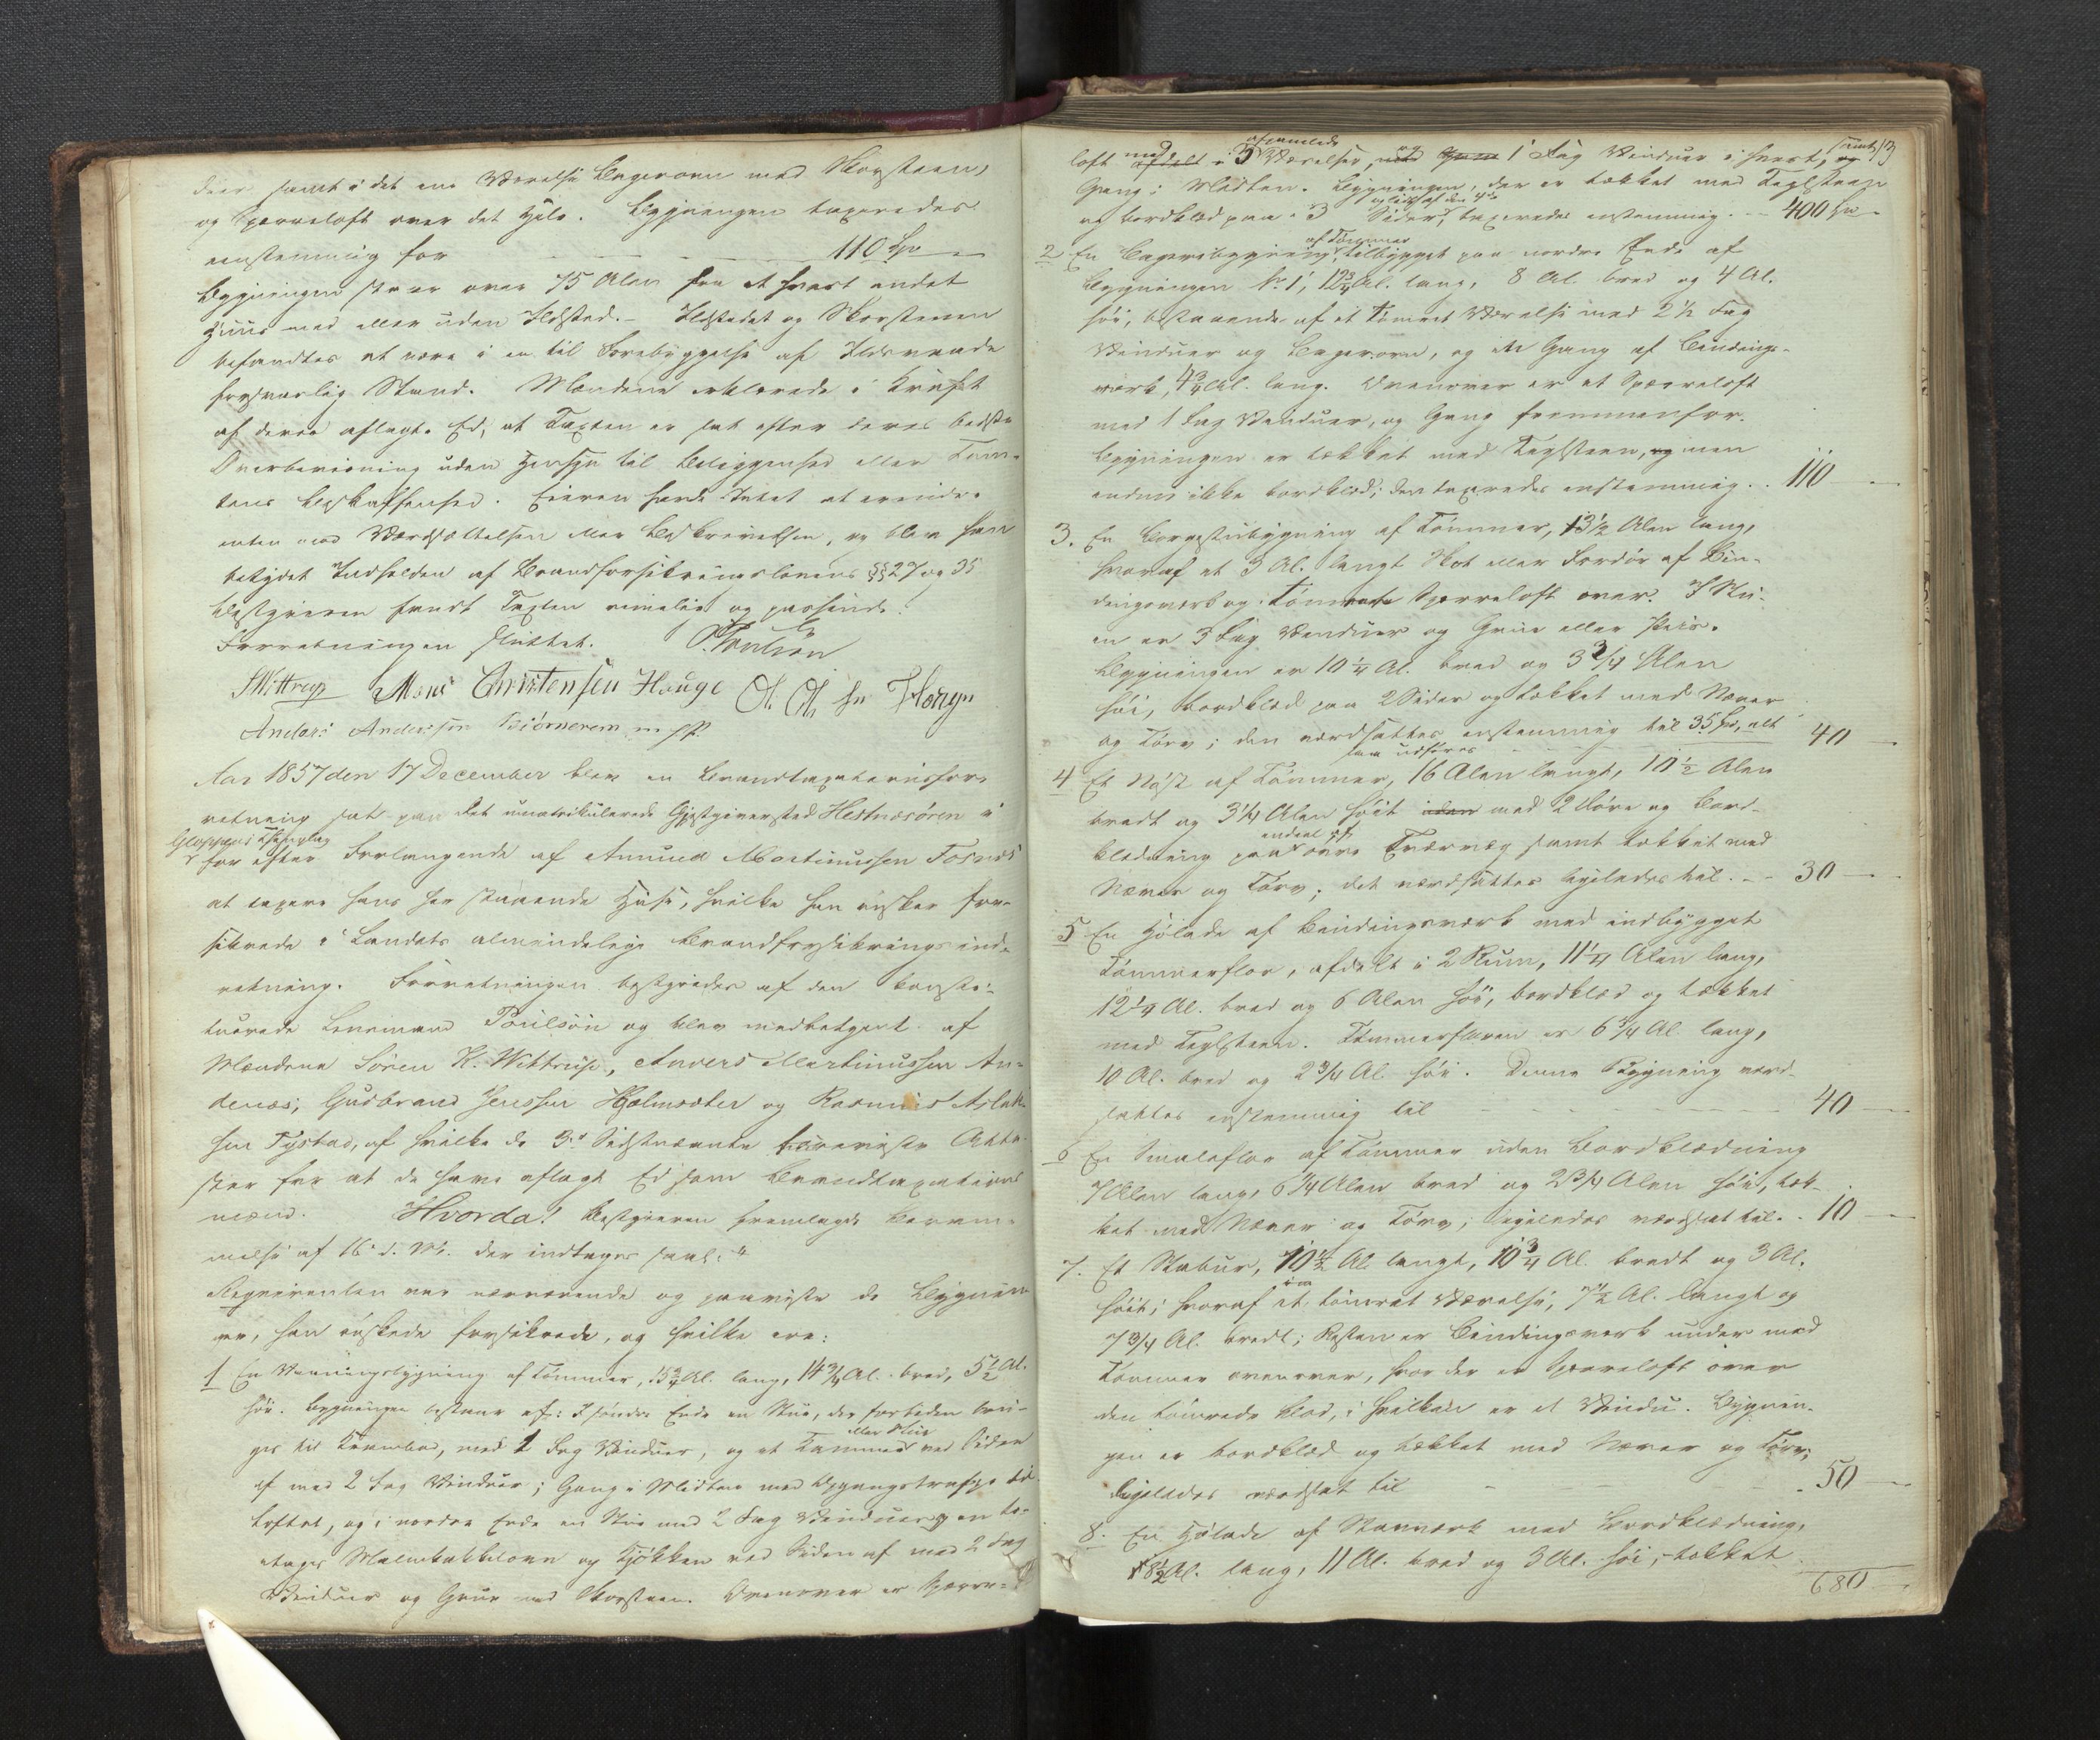 duer samt i det ene Værelse Bagerovn med Skorsteen,
og Sperreloft over det Hele. Bygningen taxeredes
eenstemmig for 110 Spd
Bygningen staar over 75 Alen fra et hvert andet
Huus med eller uden Ildsted. - Ildstedet og Skorstenen
befandtes at være i en til Forebyggelse af Ildsvaade
forsvarlig Stand. Mændene erklærede i Kraft
af deres aflagte Ed, at Taxten er sat efter deres bedste
Overbeviisning uden Hensyn til Beliggenhed eller Tom-
tens Beskaffenhed. Eieren havde Intet at erindre
enten mod Værdsættelsen eller Beskrivelsen, og blev ham
betydet Indholden af Brandforsikringslovens §§ 27 og 35
Bestyreren fandt Taxten rimelig og passende.
Forretningen sluttet. P. Poulsøn
SWittrup Mons Christensen Hauge
Anders Andersen Biørnerem m. p. P.
Aar 1857 den 17 December blev en Brandtaxationsfor-
retning sat paa det umatrikulerede Gjæstgiversted Hestnæsøren i
for efter Forlangende af Amund Martinussen Fosnæs
at taxere hans her staaende Huse, hvilke han ønsker for-
sikrede i Landets almindelige Brandforsikringsind-
retning. Forretningen bestyredes af den konsti-
tuerede Lensmand Poulsøn og blev medbetjent af
Mændene Søren K. Wittrup, Anders Martinussen An-
denæs, Gudbrand Jenssen Holmsæter og Rasmus Aslak-
sen Tystad, af hvilke de 3de Sidstnævnte foreviste Atte-
ster for at de have aflagt Ed som Brandtaxations
mænd. Hvorda! Bestyreren fremlagde Beram-
melse af 16 d. M. der indtages saal:
Reqvirenten var nærværende og paaviste de Bygnin-
ger, han ønskede forsikrede, og hvilke ere:
1 En Vaaningsbygning af Tømmer, 15 3/4 Al. lang, 14 3/4 Al. bred, 5 1/2 Al.
høi. Bygningen bestaar af: I søndre Ende en Stue, der for tiden bru-
ges til Krambod, med 1 Fag Vinduer, og et Kammer eller Stue ved Siden
af med 2 Fag Vinduer; Gang i Midten med Opgangstrappe til
Loftet, og i nordre Ende en Stue med 2 Fag Vinduer og en to-
etages Kakkelovn og Kjøkken ved Siden af med 2 Fag
Vinduer og Grue med Skorsteen. Ovenover er Sperre-
loft med afdelt i 5 Værelser, og 1 Fag Vinduer i hvert, samt
Gang i Midten. Bygningen, der er tækket med Taglsteen
og bordklæd paa 3 Sider, taxeredes enstemmig. - 400 Spd.
2 En Bageribygning af Tømmer, tilbygget paa nordre Ende af
Bygningen No 1, 12 3/4 Al. lang, 8 Al. bred og 4 Al.
høi, bestaaende af et tømret Værelse med 2 1/2 Fag
Vinduer og Bagerovn, og en Gang af Bindings-
værk, 4 3/4 Al. lang. Ovenover er et Sperreloft
med 1 Fag Vinduer, og Gang fremmenfor.
Bygningen er tækket med Taglsteen, og men
endnu ikke bordklæd; den taxeredes enstemmig. . 110
3. En Borgestubygning af Tømmer, 13 1/2 Alen lang,
hvoraf et 3 Al. langt Skot eller Fordør af Bin-
dingsværk og Sperreloft over. I Stu-
en er 3 Fag Vinduer og Grue eller Peis.
Bygningen er 10 1/4 Al. bred og 3 3/4 Alen
høi, bordklæd paa 2 Sider og tækket med Næver
og Tørv; den værdsattes enstemmig til 35 Spd, alt
saa udføres 40
4 Et Nøst af Tømmer, 16 Alen langt, 10 1/2 Alen
bredt og 3 1/4 Alen høit uden med 2 Døre og Bord-
klædning paa endeel af øvre Tværvæg samt tækket med
Næver og Tørv; det værdsattes ligeledes til. - 30
5 En Hølade af Bindingsværk med indbygget
Tømmerflor, afdelt i 2 Rum, 11 1/4 Alen lang,
12 1/4 Al. bred og 6 Alen høi, bordklæd og tækket
med Taglsteen. Tømmerfloren er 6 3/4 Al. lang,
10 Al. bred og 2 3/4 Al. høi. Denne Bygning værd-
sattes enstemmig til 40
6 En Smaleflor af Tømmer uden Bordklædning
7 Alen lang, 6 1/4 Alen bred og 2 3/4 Alen høi, tæk-
ket med Næver og Tørv; ligeledes værdsat til. . 10
7. Et Stabur, 10 1/2 Al. langt, 10 3/4 Al. bredt og 3 Al.
høit; hvoraf et tømret Værelse, 7 1/2 Al. langt og
7 3/4 Al. bredt; Resten er Bindingsværk under med
Tømmer ovenover, hvor der er Sperreloft over
den tømrede Bod, i hvilken er et Vindu. Bygnin-
gen er bordklæd og tækket med Næver og Tørv;
ligeledes værdsat til 50
8. En Hølade af Stavværk med Bordklædning,
8 1/2 Al. lang, 11 Al. bred og 3 Al. høi, tækket
680